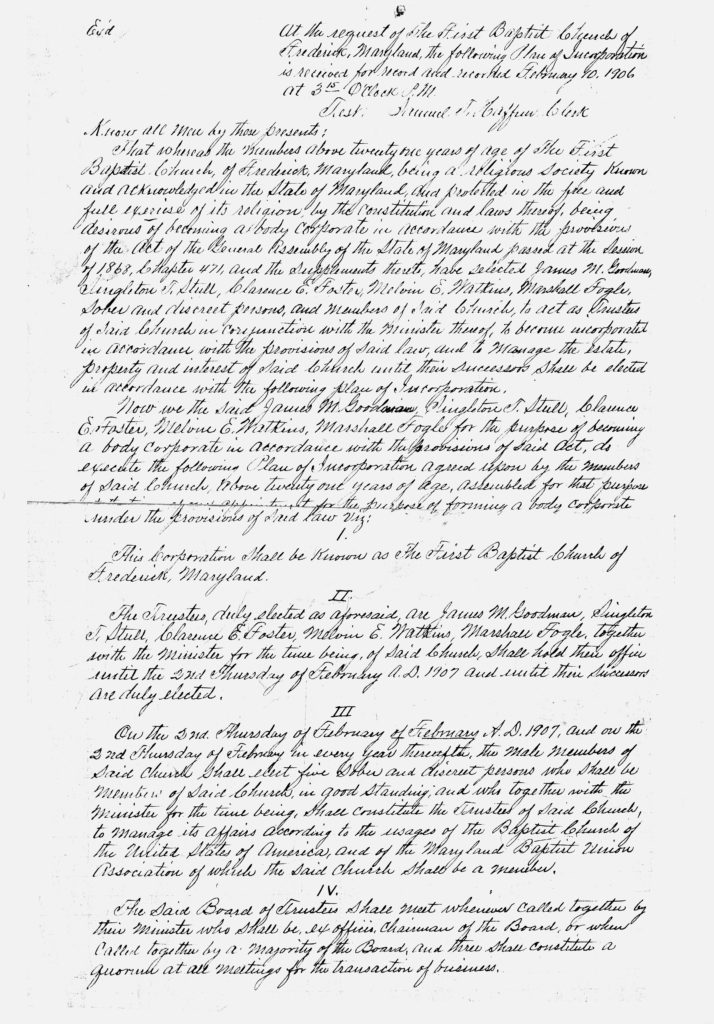 Ex'd
At the request of The First Baptist Church of
Frederick, Maryland, the following Plan of Incorporation
is received for record and recorded February 10, 1906
at 3 15 O'Clock P.M.
Test. Samuel T. Haffner Clerk
Know all Men by these presents;
That whereas the members above twenty one years of age of The First
Baptist Church, of Frederick, Maryland, being a religious Society Known
and acknowledged in the State of Maryland, and protected in the free and
full exercise of its religion, by the constitution and laws thereof, being
desirous of becoming a body corporate in accordance with the provisions
of the Act of the General Assembly of the State of Maryland passed at the Session
of 1868, Chapter 471, and the Supplements thereto, have selected James M. Goodman,
Singleton T. Stull, Clarence E. Foster, Melvin E. Watkins, Marshall Fogle,
Sober and discreet persons, and members of Said Church, to act as Trustees
of Said Church in conjunction with the Minister thereof, to become incorporated
in accordance with the provisions of Said law, and to Manage the estate,
property and interest of Said Church until their successors Shall be elected
in accordance with the following plan of Incorporation.
Now we the Said James M. Goodman, Singleton T. Stull, Clarence
E. Foster, Melvin E. Watkins, Marshall Fogle for the purpose of becoming
a body corporate in accordance with the provisions of Said Act, do
execute the following Plan of Incorporation agreed upon by the members
of Said Church, above twenty one years of age, assembled for that purpose
for the purpose of forming a body corporate
under the provisions of Said law Viz:
I.
This Corporation Shall be Known as The First Baptist Church of
Frederick, Maryland.
II
The Trustees, duly elected as aforesaid, are James M. Goodman, Singleton
T. Stull, Clarence E. Foster, Melvin E. Watkins, Marshall Fogle, together
with the Minister for the time being, of Said Church, Shall hold their office
until the 2nd Thursday of February A.D. 1907 and until their Successors
are duly elected.
III
On the 2nd. Thursday of February of February A.D. 1907, and on the
2nd Thursday of February in every year thereafter, the male members of
Said Church Shall elect five Sober and discreet persons who Shall be
Members of Said Church, in good Standing, and who together with the
Minister for the time being, Shall constitute the Trustees of Said Church,
to manage its affairs according to the usages of the Baptist Church of
the United States of America, and of the Maryland Baptist Union
Association of which the Said Church Shall be a member.
IV.
The Said Board of Trustees Shall meet whenever called together by
their Minister who Shall be, ex officio, Chairman of the Board, or when
Called together by a Majority of the Board, and three Shall constitute a
quorum at all Meetings for the transaction of business.